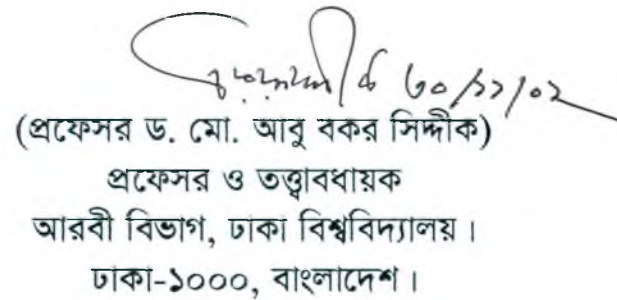 ৩০/১১/০২
(প্রফেসর ড. মো. আবু বকর সিদ্দীক)
প্রফেসর ও তত্ত্বাবধায়ক
আরবী বিভাগ, ঢাকা বিশ্ববিদ্যালয়।
ঢাকা-১০০০, বাংলাদেশ।